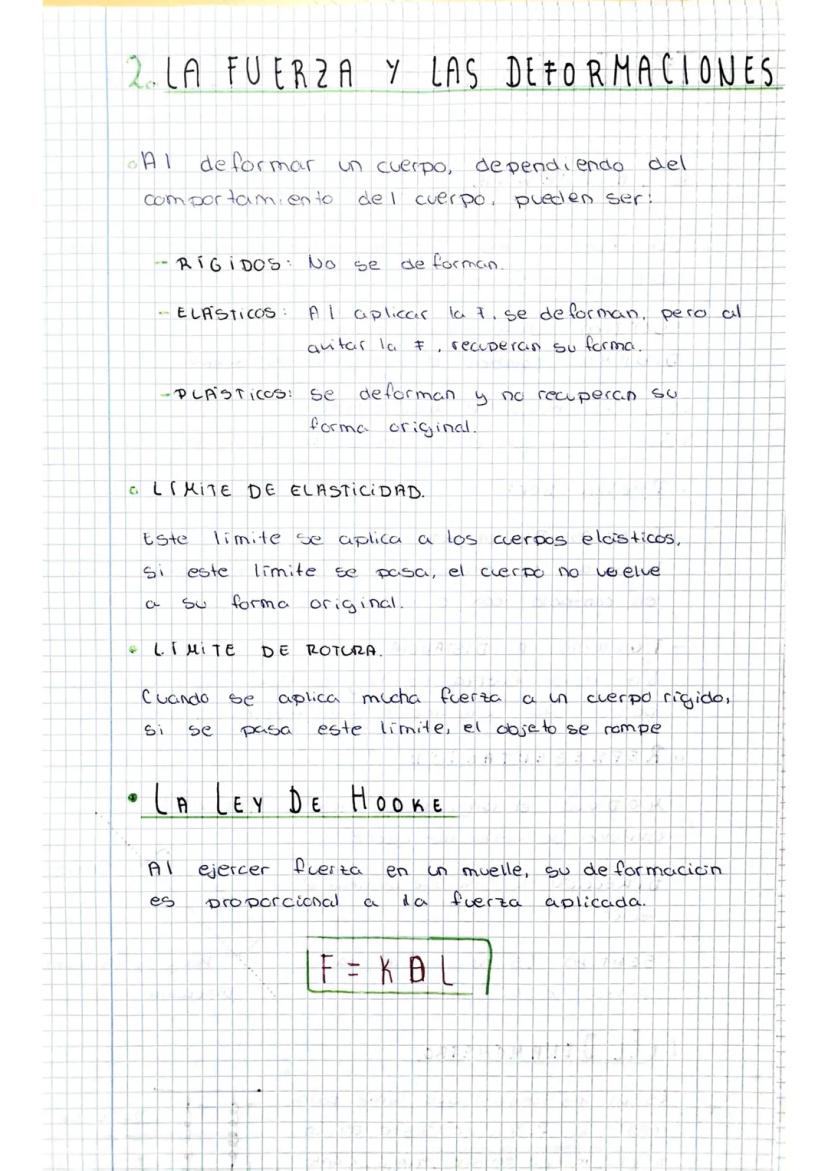 2. LA FUERZA Y LAS DEFORMACIONES
Al deformar un cuerpo, dependiendo del
comportamiento del cuerpo, pueden ser:
- RÍGIDOS: No se deforman.
- ELÁSTICOS: Al aplicar la F, se deforman, pero al
quitar la F, recuperan su forma.
- PLÁSTICOS: se deforman y no recuperan su
forma original.
LÍMITE DE ELASTICIDAD.
Este límite se aplica a los cuerpos elásticos,
si este límite se pasa, el cuerpo no vuelve
a su forma original.
LÍMITE DE ROTURA.
Cuando se aplica mucha fuerza a un cuerpo rígido,
si se pasa este límite, el objeto se rompe
• LA LEY DE HOOKE
Al ejercer fuerza en un muelle, su deformación
es proporcional a la fuerza aplicada.
F = K Δ L